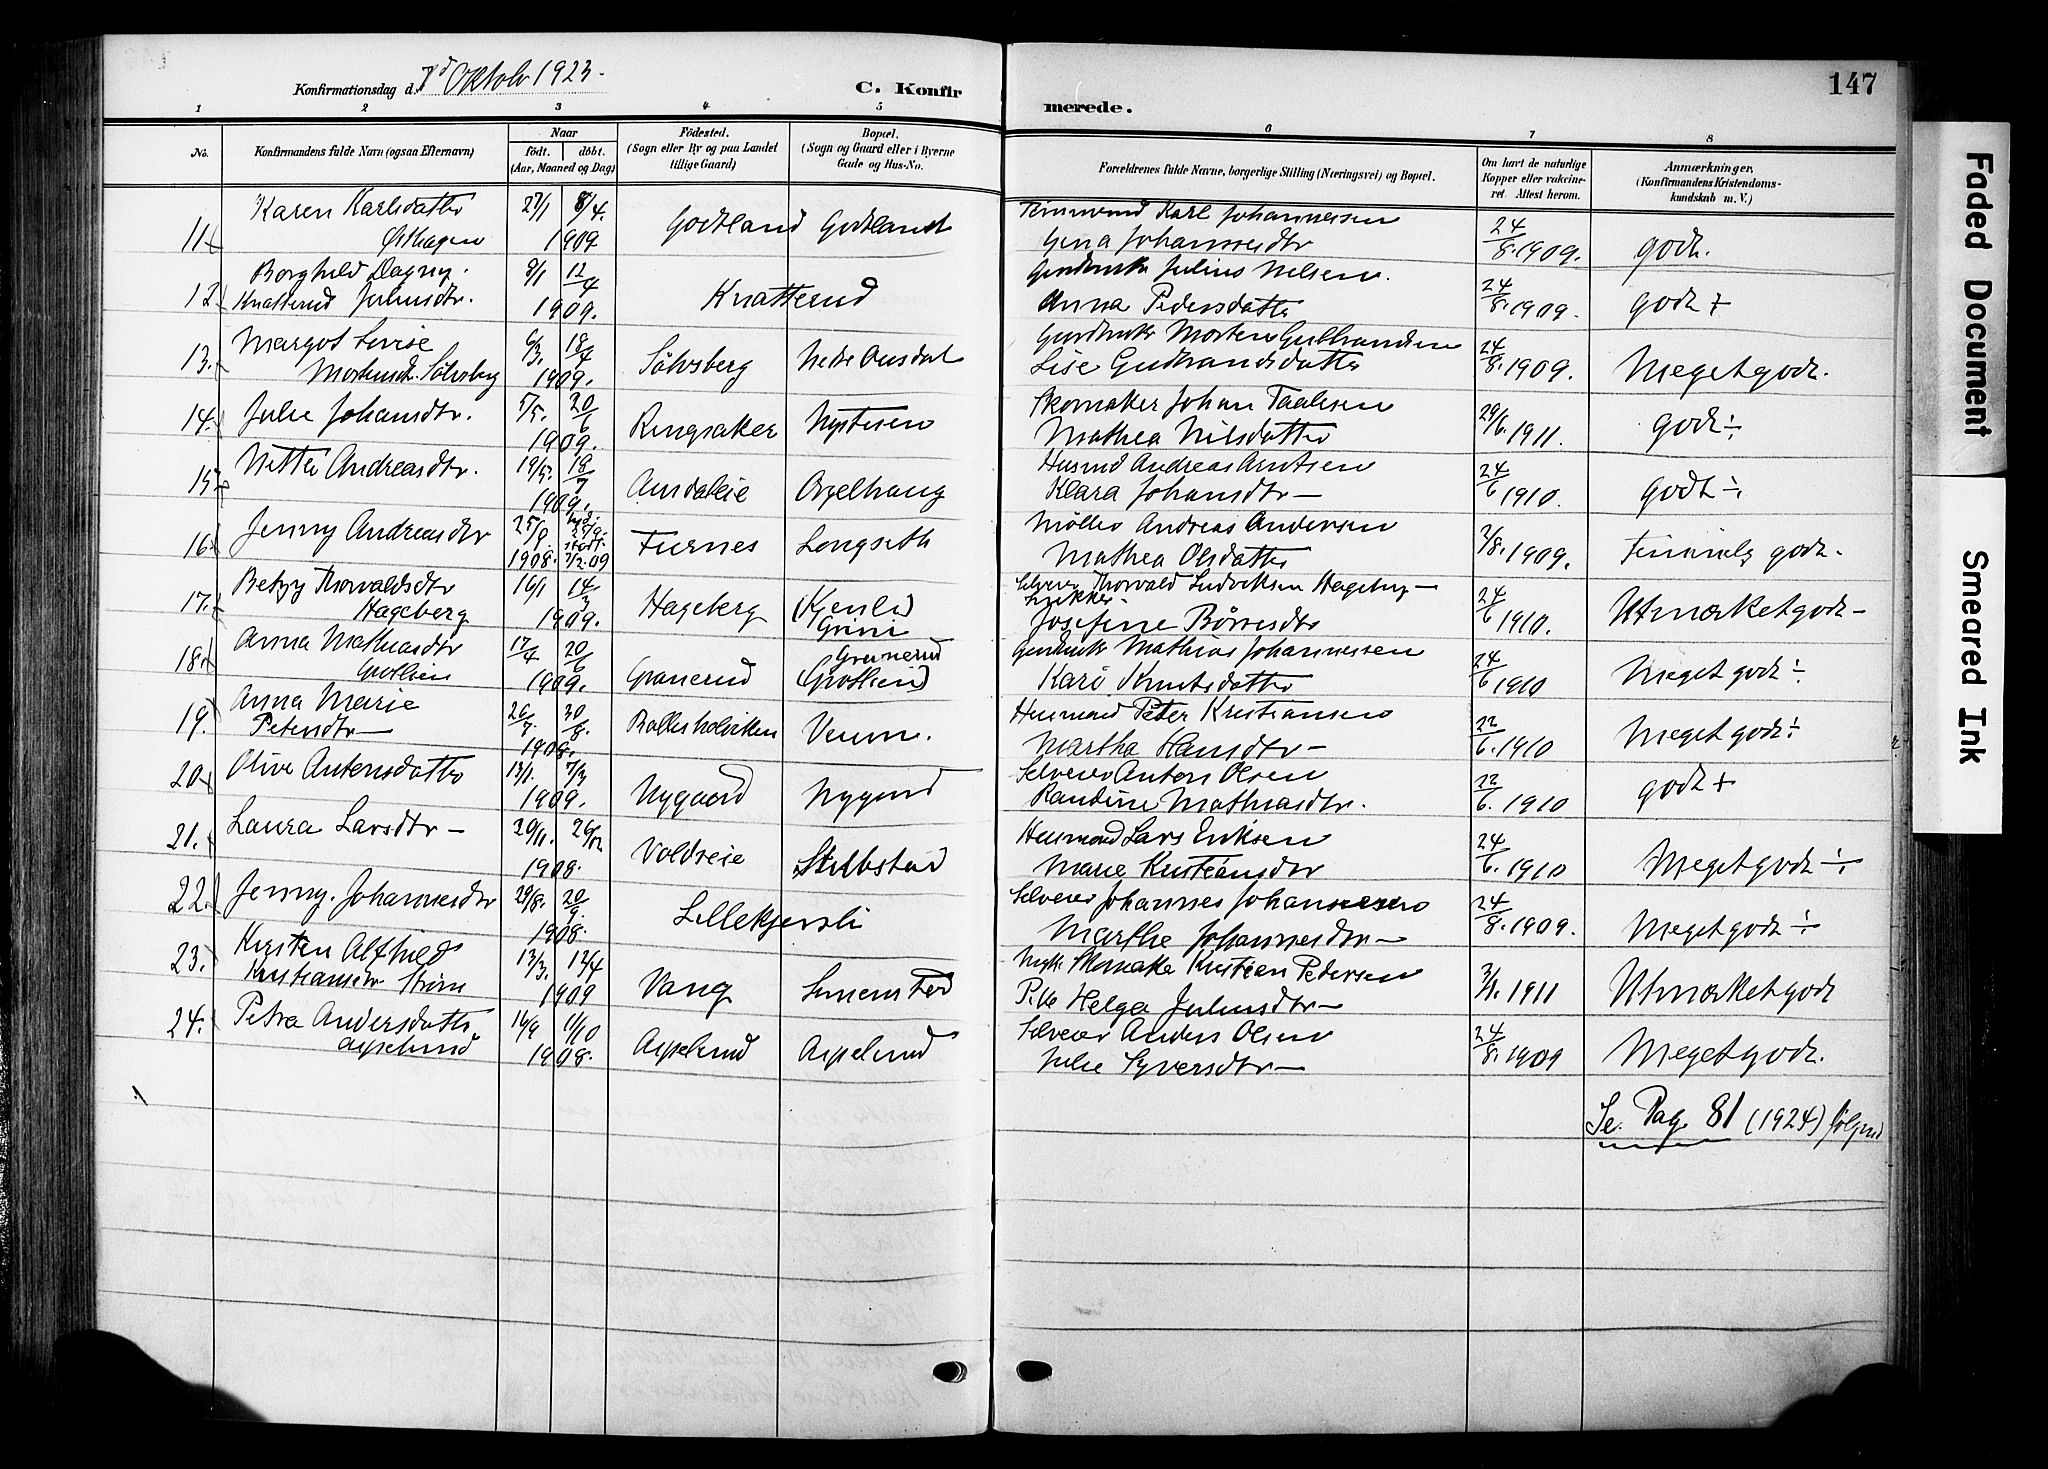 147
Konfirmationsdag d. 7d Oktob 1923.
C. Konfirmerede.
1 2 3 4 5 6 7 8
No. Konfirmandens fulde Navn (ogsaa Efternavn) Naar født. døbt. (Aar, Maaned og Dag) Fødested. (Sogn eller By og paa Landet tillige Gaard) Bopæl. (Sogn og Gaard eller i Byerne Gade og Hus-No. Forældrenes fulde Navne, borgerlige Stilling (Næringsvei) og Bopæl. Om havt de naturlige Kopper eller vakcineret. Attest herom. Anmærkninger, (Konfirmandens Kristendomskundskab m. V.)
11. Karen Karlsdatter Østhagen 27/1 8/4. 1909 Godtland Godtland Karl Johannessen Gina Johannesdtr 24/8. 1909. godt.
12. Borghild Dagny Knatterud Juliusdtr. 8/1 12/4 1909. Knatterud Gardbruker Julius Nilsen. Anna Pedersdatter 24/8. 1909. godt +
13. Margot Lovise Mortensdt. Sølvsberg 6/3. 18/4 1909. Sølvsberg Nedre Ausdal Gardbruker Morten Gulbrandsen Lise Gudbrandsdatter 24/8. 1909. Meget godt.
14. Julie Johansdtr. 5/5. 20/6 1909. Ringsaker Nystuen Skomaker Johan Paulsen Mathea Nilsdatter 29/6. 1911. godt ÷
15. Andreasdtr. 19/5. 18/7 1909. Ausdaleie Husmd Andreas Arntsen Klara Johansdtr — 24/6 1910. godt ÷
16. Jenny Andreasdtr 25/8. 1908. 7/2.09 Furnes Longseth Møller Andreas Andersen Mathea Olsdatter 2/8. 1909. Temmelig godt.
17. Betzy Thorvaldsdtr Hageberg 16/1 14/3 1909. Hageberg (Kjenli) Grini Selveier Thorvald Ludviksen Hageberg — Josefine Børresdtr 24/6 1910. Utmerket godt —
18. Anna Mathiasdtr Grotlien 17/4 20/6 1909. Granerud Granerud (Grotlien) Gardbruker Mathias Johannessen Kari Knutsdatter 24/6 1910 Meget godt ÷
19. Anna Marie Petersdtr — 26/7. 30/8. 1908. Ballisholviken Veum. Husmand Peter Kristiansen Martha Hansdtr — 22/6. 1910 Meget godt ÷
20. Olive Antonsdatter 13/1. 7/3 1909. Nygaard Nygaard Selveier Anton Olsen Randine Mathiasdtr. 22/6. 1910 godt +
21. Laura Larsdtr — 20/11. 26/12 1908. Voldseie Stubstad Husmand Lars Eriksen Marie Kristiansdtr 24/6. 1910 Meget godt ÷
22. Jenny Johannesdtr 29/8. 20/9. 1908. Lillekjersli Selveier Johannes Johannessen Marthe Johannesdtr — 24/8. 1909. Meget godt ÷
23. Kirsten Alfhild Kristiansdtr Strøm 13/3. 12/4 1909 Vang Simenstad Skomaker Kristian Pedersen Pike Helga Juliusdtr — 3/1. 1911 Utmerket godt
24. Petra Andersdatter Aspelund 16/9 11/10 1908. Aspelund Aspelund Selveier Anders Olsen Julie Syversdtr — 24/8. 1909 Meget godt.
Se. Pag. 81 (1924) følgend
Faded Document
Smeared Ink